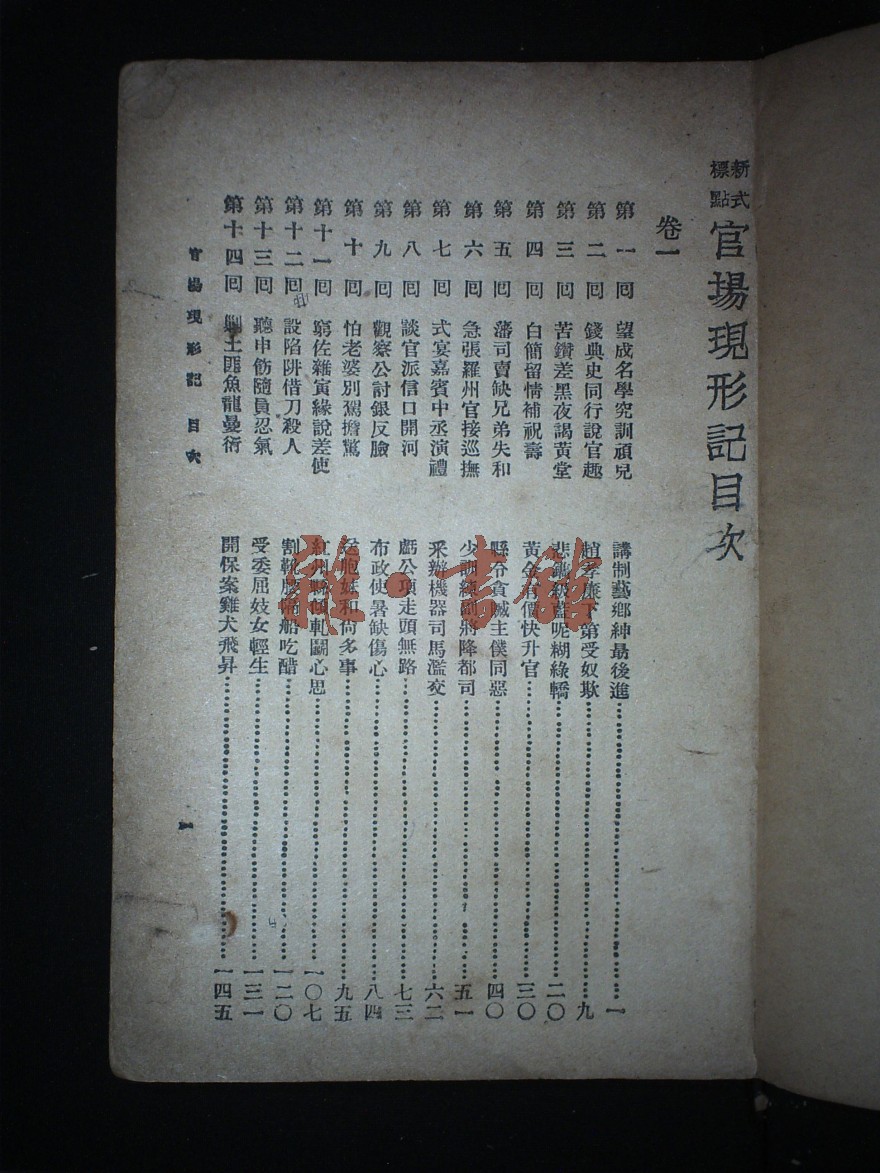 新式標點 官場現形記目次
卷一
第一回 望成名學究訓頑兒 講制藝鄉紳最後進 一
第二回 錢典史同行說官趣 趙孝廉下第受奴欺 九
第三回 苦鑽差黑夜謁黃堂 悲鐫級藍呢糊綠轎 二〇
第四回 白簡留情補祝壽 黃金有價快升官 三〇
第五回 藩司賣缺兄弟失和 縣令貪贓主僕同惡 四〇
第六回 急張羅州官接巡撫 少訓練副將降都司 五一
第七回 式宴嘉賓中丞演禮 采辦機器司馬濫交 六二
第八回 談官派信口開河 虧公項走頭無路 七三
第九回 觀察公討銀反臉 布政使署缺傷心 八四
第十回 怕老婆別駕擔驚 送胞妹和尚多事 九五
第十一回 窮佐雜寅緣說差使 紅州縣傾軋鬬心思 一〇七
第十二回 設陷阱借刀殺人 割靴腰隔船吃醋 一二〇
第十三回 聽申飭隨員忍氣 受委屈妓女輕生 一三一
第十四回 剿土匪魚龍曼衍 開保案雞犬飛昇 一四五
官場現形記 目次 一
雜·書館